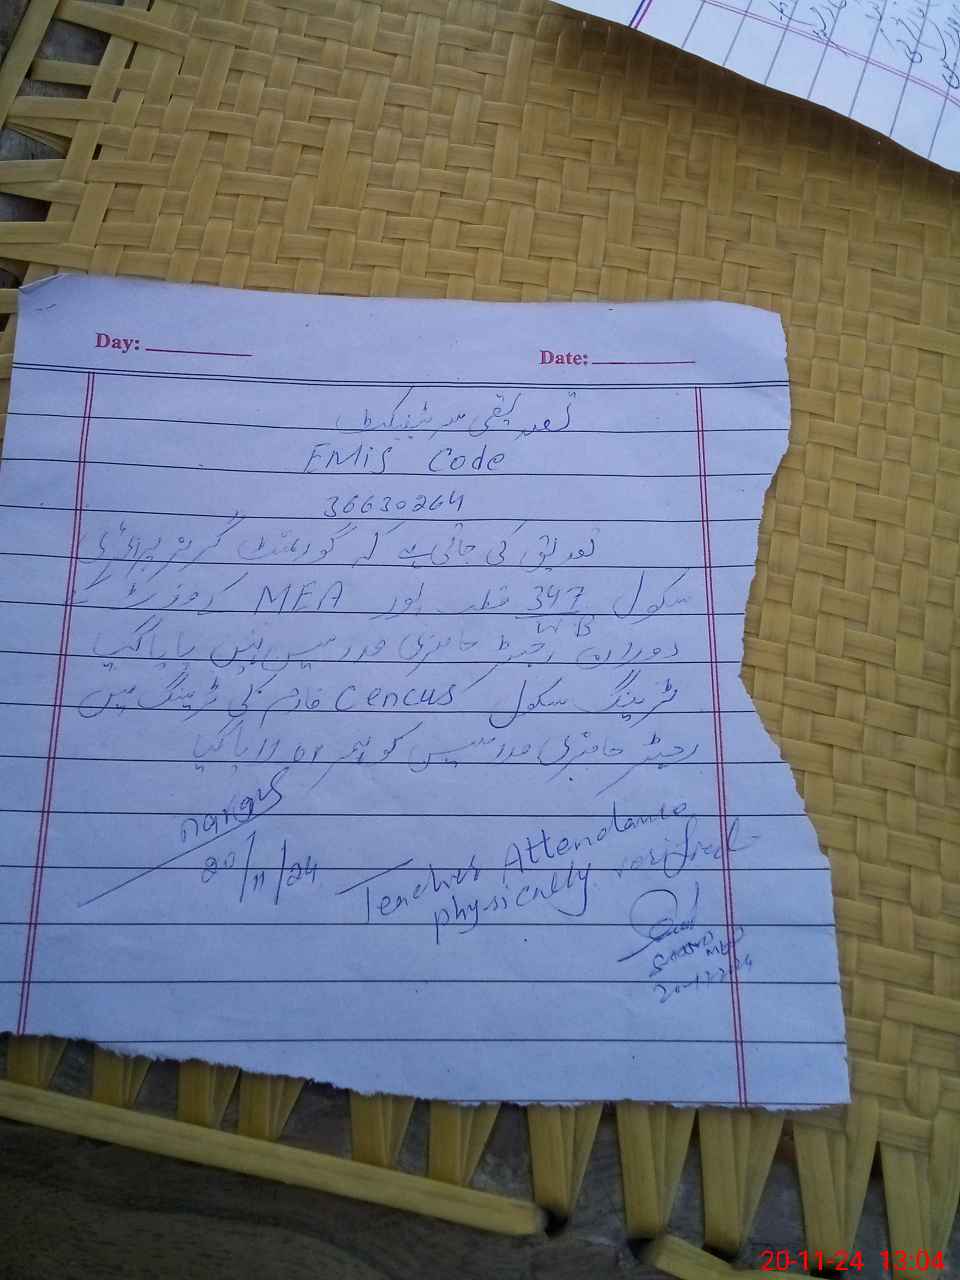 Day:
Date:
تصدیقی سرٹیفکیٹ
EMIS Code
36630264
تصدیق کی جاتی ہے کہ گورنمنٹ گرلز پرائمری
سکول 347 W.B اور MEA کے وزٹ کے
دوران رجسٹر حاضری مدرسین نہیں پایا گیا
ٹریننگ سکول Cencus فارم کی ٹریننگ میں
رجسٹر حاضری مدرسیں کو پایا گیا
nargis
20/11/24
Teacher Attendance
physically verified
20-11-24 13:04